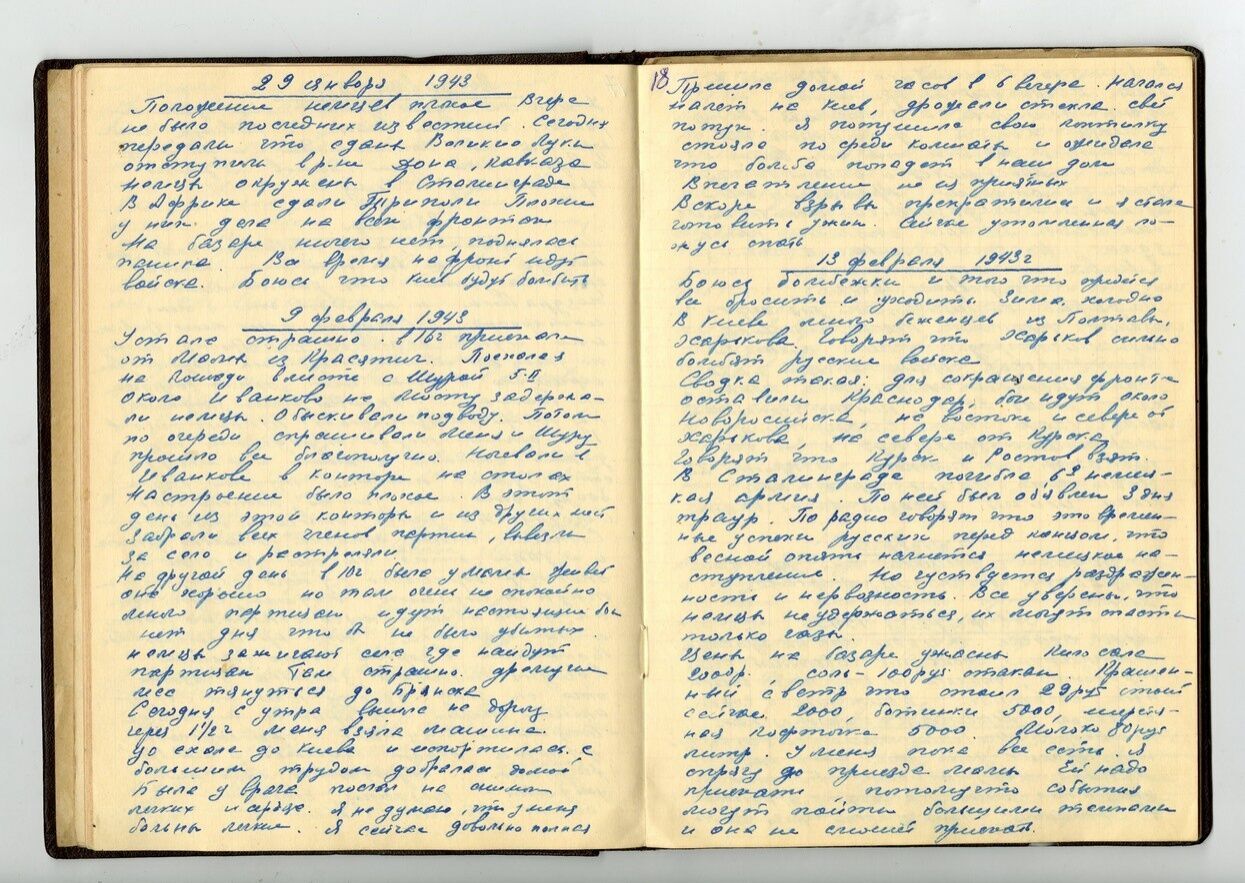 29 января 1943
Положение немцев плохое Вчера
не было последних известий. Сегодня
передали что сдали Великие Луки
отступили в р-не Дона, Кавказа
немцы окружены в Сталинграде
В Африке сдали Триполи Плохи
у них дела на всех фронтах
На базаре ничего нет, поднялась
паника. Все время на фронт идут
войска. Боюсь что Киев будут бомбить
9 февраля 1943
Устала страшно. в 16г приехала
от Мамы из Красятич. Поехала
на лошади вместе с Шурой 5-II
около Иванково на мосту задержа-
ли немцы. Обыскивали подводу. Потом
по очереди спрашивали меня и Шуру
прошло все благополучно. Ночевали в
Иванкове в конторе на столах
Настроение было плохое В этот
день из этой конторы и из других
забрали всех членов партии, вывезли
за село и расстреляли.
На другой день в 10г была у мамы Живет
она хорошо но там очень не спокойно
много партизан идут настоящие бои
нет дня что б не было убитых.
немцы зажигают села где найдут
партизан Там страшно. дремучие
леса тянуться до Брянска
Сегодня с утра вышла на дорогу
через 1 1/2 г меня взяла машина.
до ехала до Киева и испортилась. с
большим трудом добралась домой
Была у врача послал на снимок
легких и сердце. Я не думаю, что у меня
больны легкие. Я сейчас довольно полная
18 Пришла домой часов в 6 вечера. Начался
налет на Киев, дрожали стекла. свет
потух. Я потушила свою коптилку
стояла по среди комнаты и ожидала
что бомба попадет в наш дом
Впечатление не из приятных
Вскоре взрывы прекратились и я стала
готовить ужин. Сейчас утомленная ло-
жусь спать
13 февраля 1943г
Боюсь бомбежки и того что прийдет
ся бросить и уходить. Зима, холодно
В Киеве много беженцев из Полтавы,
Харькова. Говорят что Харьков сильно
бомбят русские войска
Сводка такая: для сокращения фронта
оставили Краснодар, бои идут около
Новороссийска, на востоке и севере от
Харькова, на севере от Курска
Говорят что Курск и Ростов взят.
В Сталинграде погибла 6я немец-
кая армия. По ней был объявлен 3 дня
траур. По радио говорят что это времен-
ные успехи русских перед концом, что
весной опять начнется немецкое на-
ступление. Но чуствуется раздражен-
ность и нервозность. Все уверены, что
немцы не удержаться, их могут спасти
только газы.
Цены на базаре ужасны Кило сала
2000р. соль-100руб стакан. Крашен-
ный светр что стоил 29руб стоит
сейчас 2000, ботинки 5000, шерстя-
ная кофточка 5000. Молоко 80руб
литр. У меня пока все есть. Я
спрячу до приезда мамы Ей надо
приехать потомучто события
могут пойти большими темпами
и она не сможет приехать.